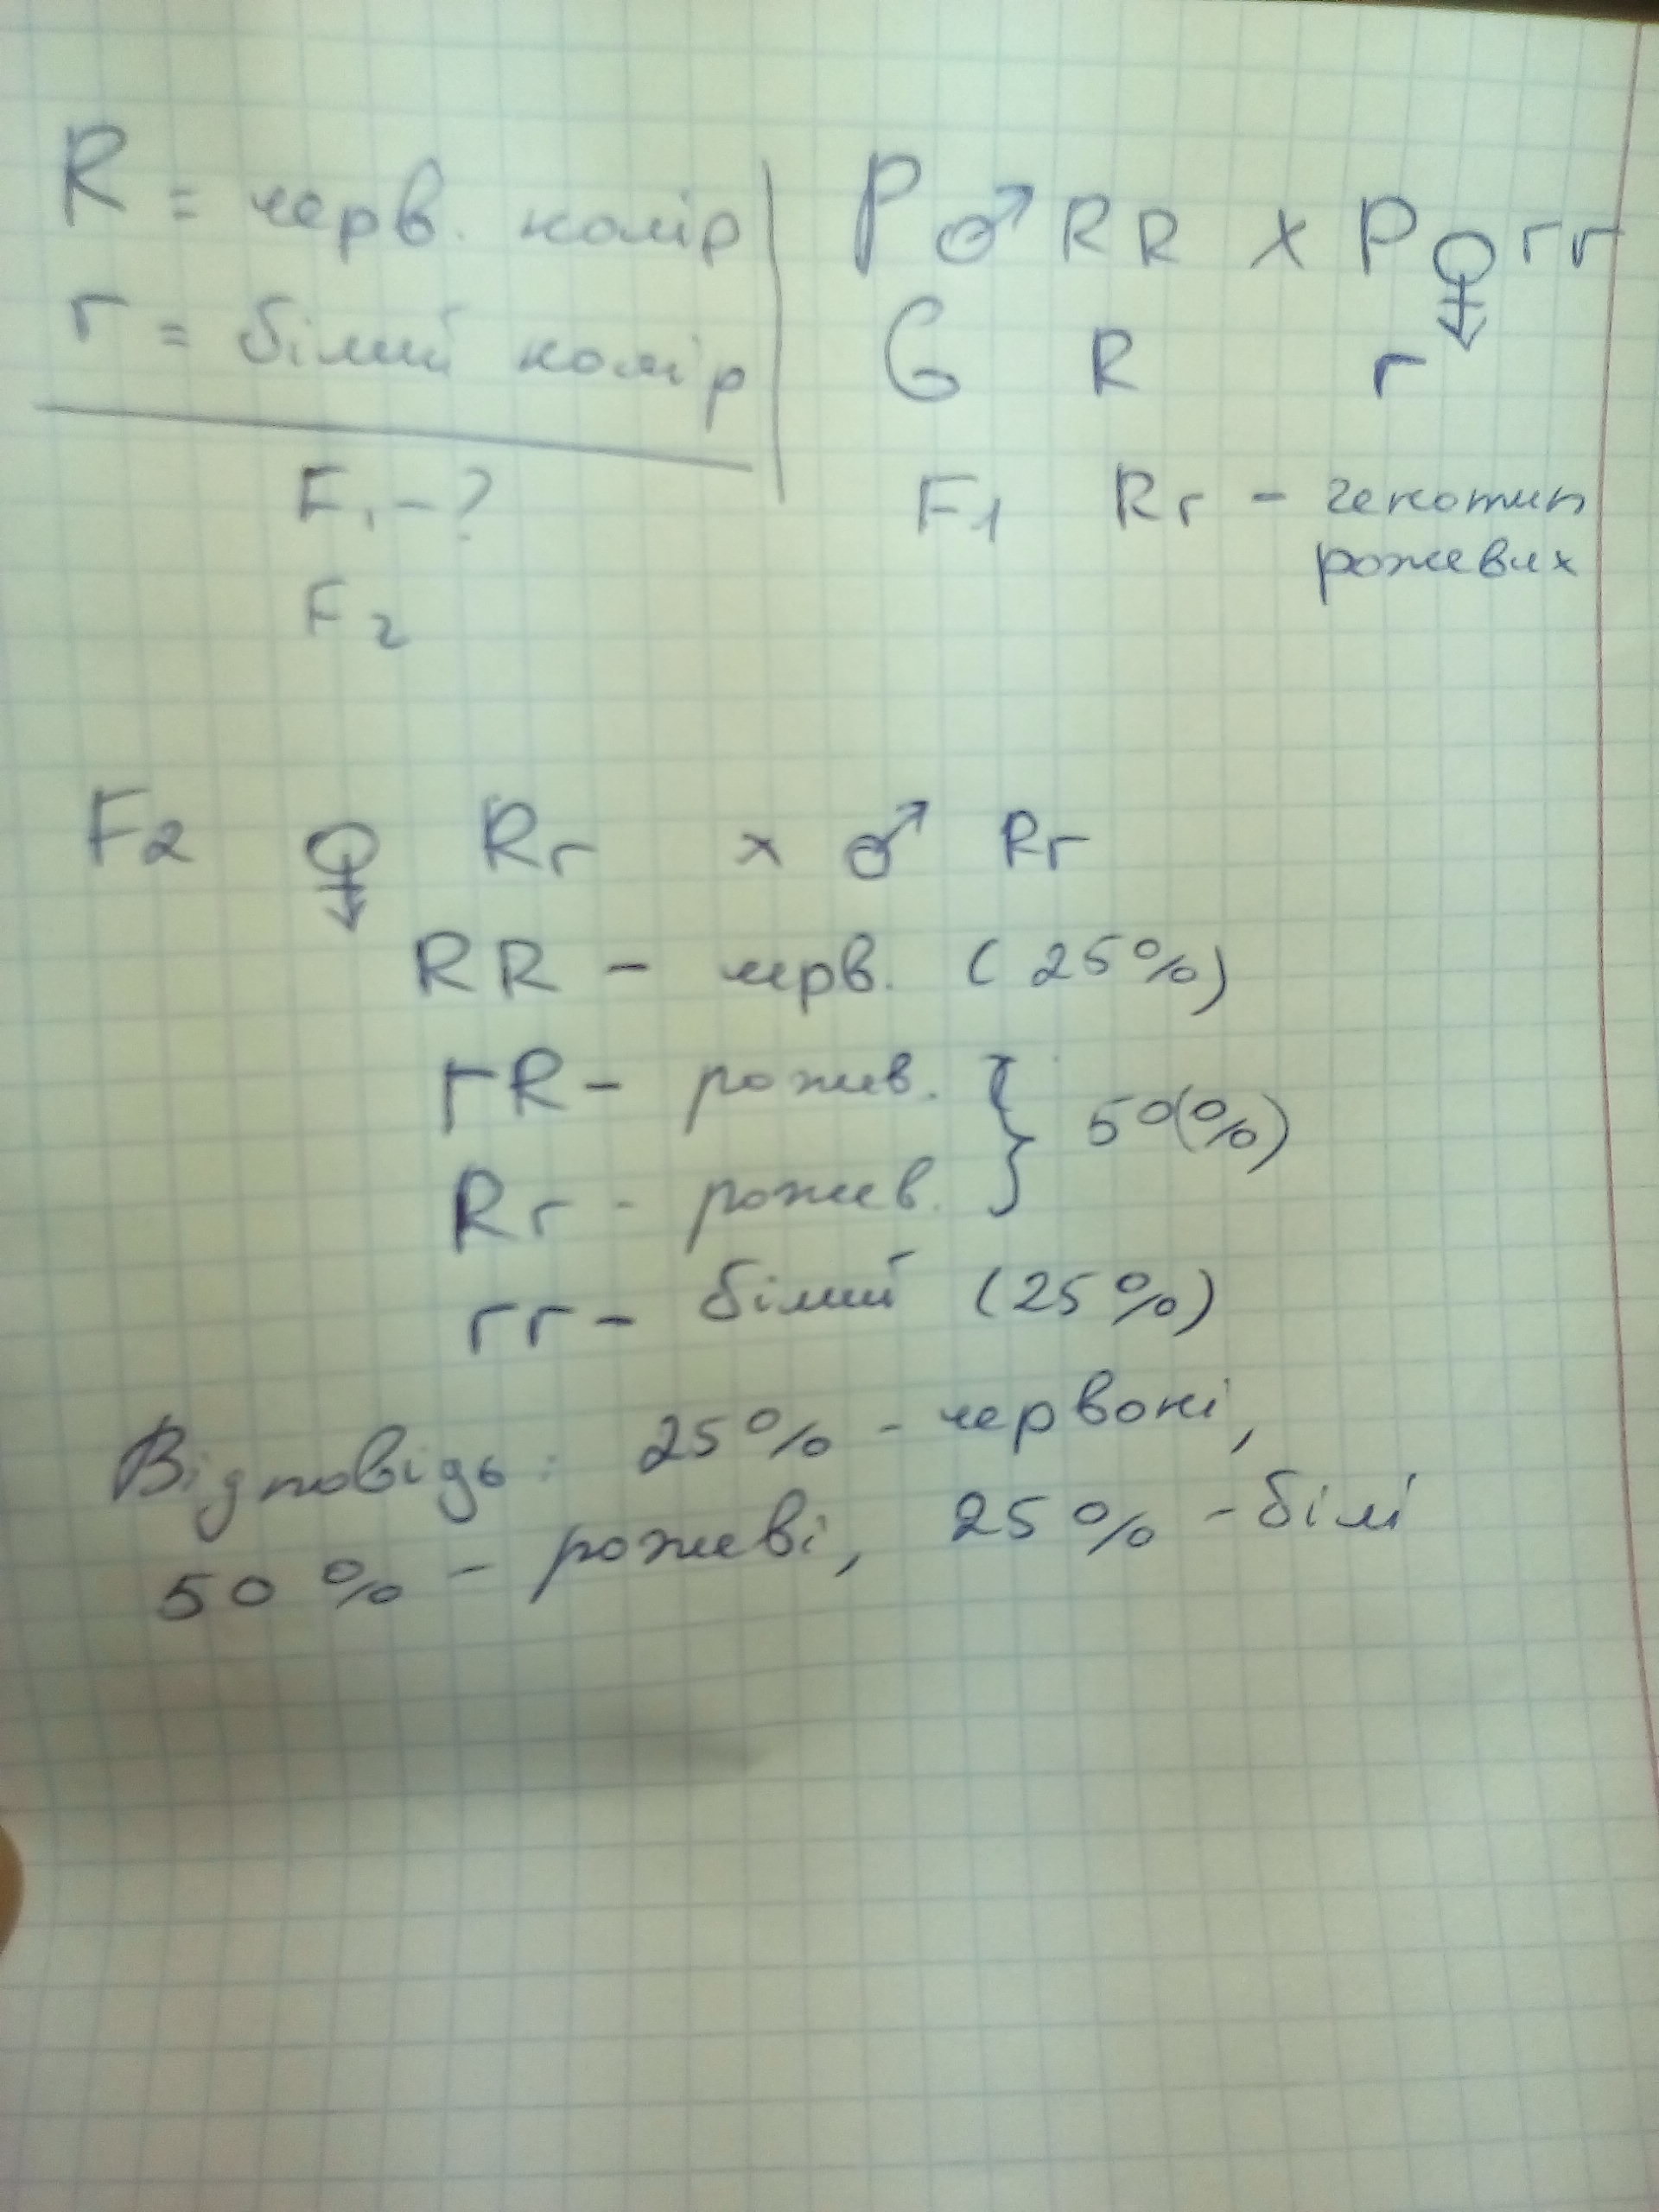 R = черв. колір
r = білий колір
F1 - ?
F2
P ♂ RR x P ♀ rr
G R r
F1 Rr - генотип
рожевих
F2 ♀ Rr x ♂ Rr
RR - черв. (25%)
rR - рожев.
} 50(%)
Rr - рожев.
rr - білий (25%)
Відповідь: 25% - червоні,
50% - рожеві, 25% - білі